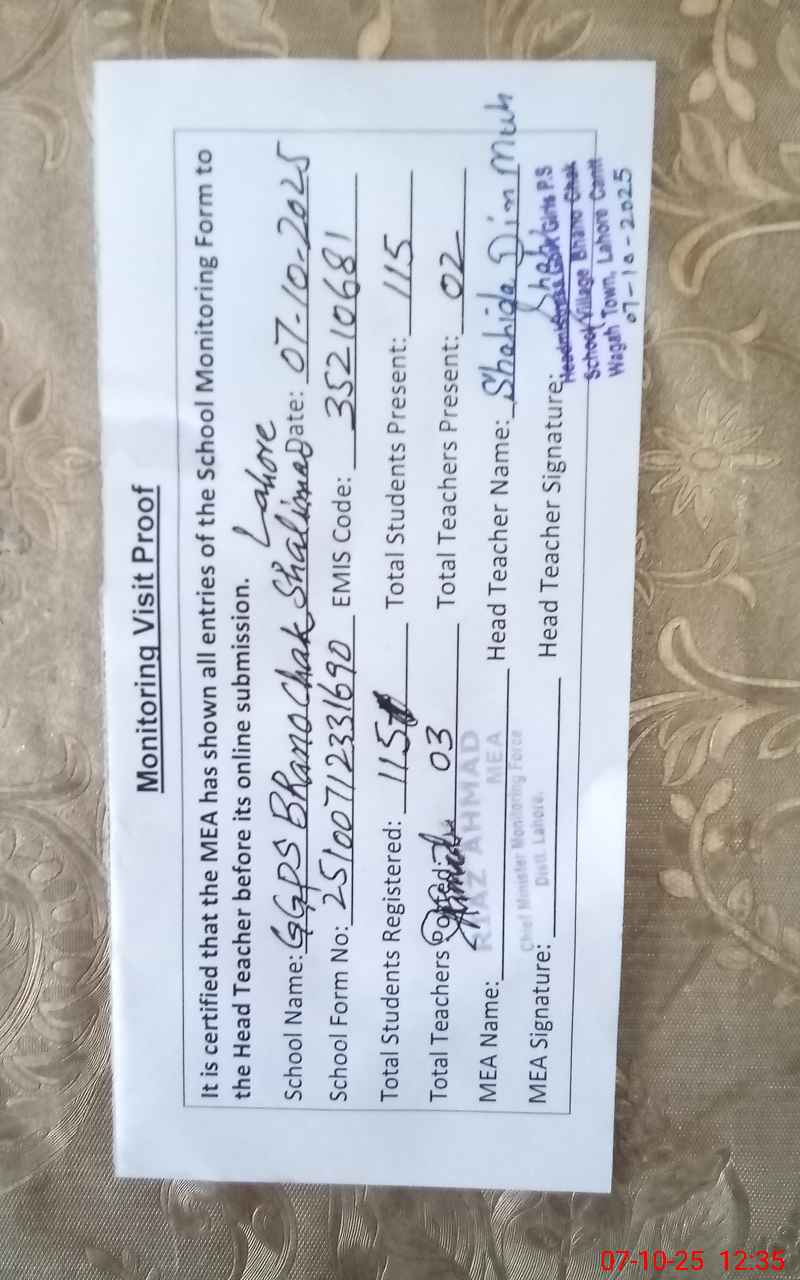 Monitoring Visit Proof
It is certified that the MEA has shown all entries of the School Monitoring Form to
the Head Teacher before its online submission.
School Name: GGPS Bhano Chak Shalimar Lahore Date: 07-10-2025
School Form No: 251007112331690 EMIS Code: 35210681
Total Students Registered: 115 Total Students Present: 115
Total Teachers Posted: 03 Total Teachers Present: 02
RIAZ AHMAD
MEA
Chief Minister Monitoring Force
Distt. Lahore.
MEA Name: Head Teacher Name: Shahida Din Muh
MEA Signature: Head Teacher Signature:
Girls P.S
School Village Bhano Chak
Wagah Town, Lahore Cantt
07-10-2025
07-10-25 12:35